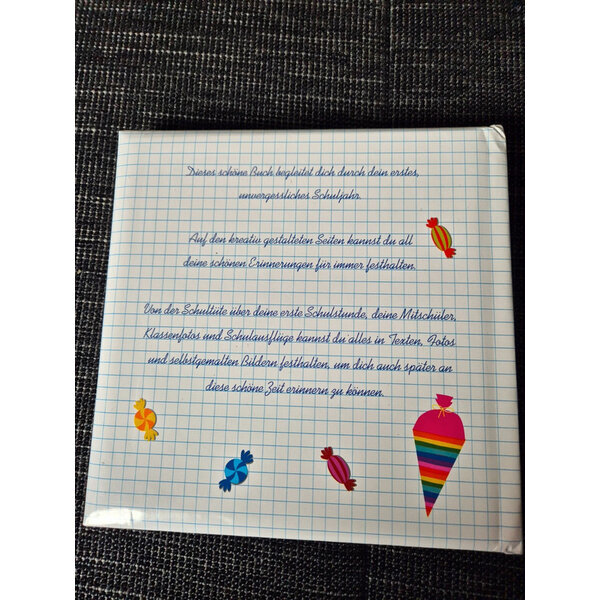 Dieses schöne Buch begleitet dich durch dein erstes,
unvergessliches Schuljahr.
Auf den kreativ gestalteten Seiten kannst du all
deine schönen Erinnerungen für immer festhalten.
Von der Schultüte über deine erste Schulstunde, deine Mitschüler,
Klassenfotos und Schulausflüge kannst du alles in Texten, Fotos
und selbstgemalten Bildern festhalten, um dich auch später an
diese schöne Zeit erinnern zu können.